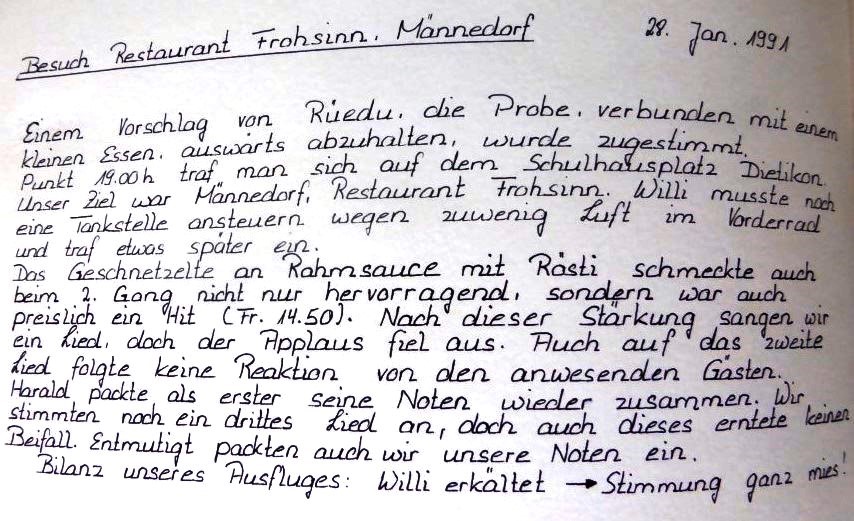 Besuch Restaurant Frohsinn, Männedorf 28. Jan. 1991
Einem Vorschlag von Rüedu, die Probe, verbunden mit einem
kleinen Essen, auswärts abzuhalten, wurde zugestimmt.
Punkt 19.00h traf man sich auf dem Schulhausplatz Dietikon.
Unser Ziel war Männedorf, Restaurant Frohsinn. Willi musste noch
eine Tankstelle ansteuern wegen zuwenig Luft im Vorderrad
und traf etwas später ein.
Das Geschnetzelte an Rahmsauce mit Rösti schmeckte auch
beim 2. Gang nicht nur hervorragend, sondern war auch
preislich ein Hit (Fr. 14.50). Nach dieser Stärkung sangen wir
ein Lied, doch der Applaus fiel aus. Auch auf das zweite
Lied folgte keine Reaktion von den anwesenden Gästen.
Harald packte als erster seine Noten wieder zusammen. Wir
stimmten noch ein drittes Lied an, doch auch dieses erntete keinen
Beifall. Entmutigt packten auch wir unsere Noten ein.
Bilanz unseres Ausfluges: Willi erkältet → Stimmung ganz mies!